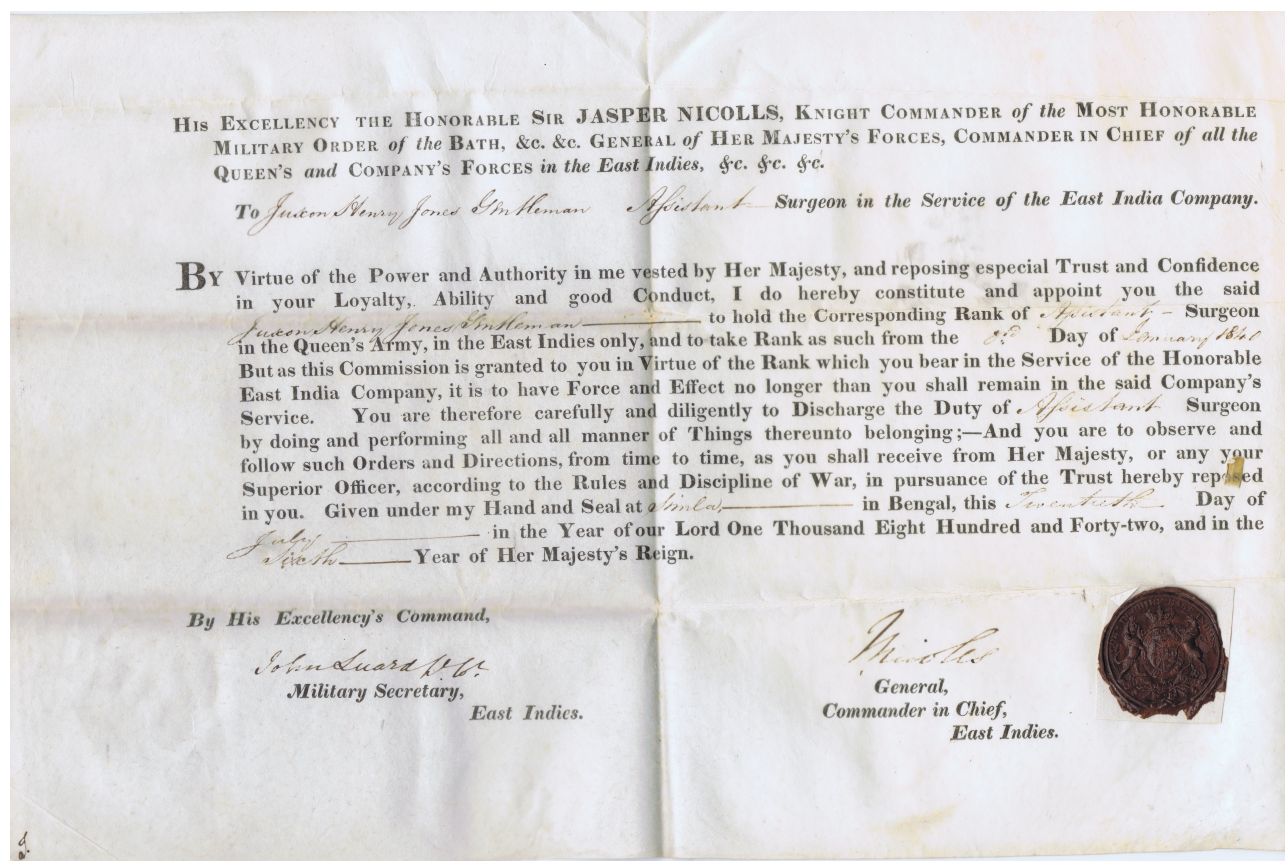 HIS EXCELLENCY THE HONORABLE SIR JASPER NICOLLS, KNIGHT COMMANDER of the MOST HONORABLE
MILITARY ORDER of the BATH, &c. &c. GENERAL of HER MAJESTY'S FORCES, COMMANDER IN CHIEF of all the
QUEEN'S and COMPANY'S FORCES in the East Indies, &c. &c. &c.
To Juxon Henry Jones Gentleman Assistant Surgeon in the Service of the East India Company.
BY Virtue of the Power and Authority in me vested by Her Majesty, and reposing especial Trust and Confidence
in your Loyalty, Ability and good Conduct, I do hereby constitute and appoint you the said
Juxon Henry Jones Gentleman to hold the Corresponding Rank of Assistant Surgeon
in the Queen's Army, in the East Indies only, and to take Rank as such from the Day of January
But as this Commission is granted to you in Virtue of the Rank which you bear in the Service of the Honorable
East India Company, it is to have Force and Effect no longer than you shall remain in the said Company's
Service. You are therefore carefully and diligently to Discharge the Duty of Assistant Surgeon
by doing and performing all and all manner of Things thereunto belonging;—And you are to observe and
follow such Orders and Directions, from time to time, as you shall receive from Her Majesty, or any your
Superior Officer, according to the Rules and Discipline of War, in pursuance of the Trust hereby reposed
in you. Given under my Hand and Seal at Simla, in Bengal, this Twentieth Day of
July in the Year of our Lord One Thousand Eight Hundred and Forty-two, and in the
Sixth Year of Her Majesty's Reign.
By His Excellency's Command,
John Luard
Military Secretary,
East Indies.
JNicolls
General,
Commander in Chief,
East Indies.